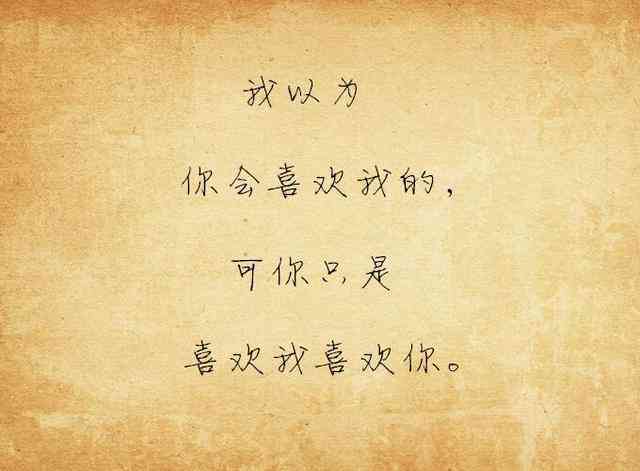 我以为
你会喜欢我的，
可你只是
喜欢我喜欢你。